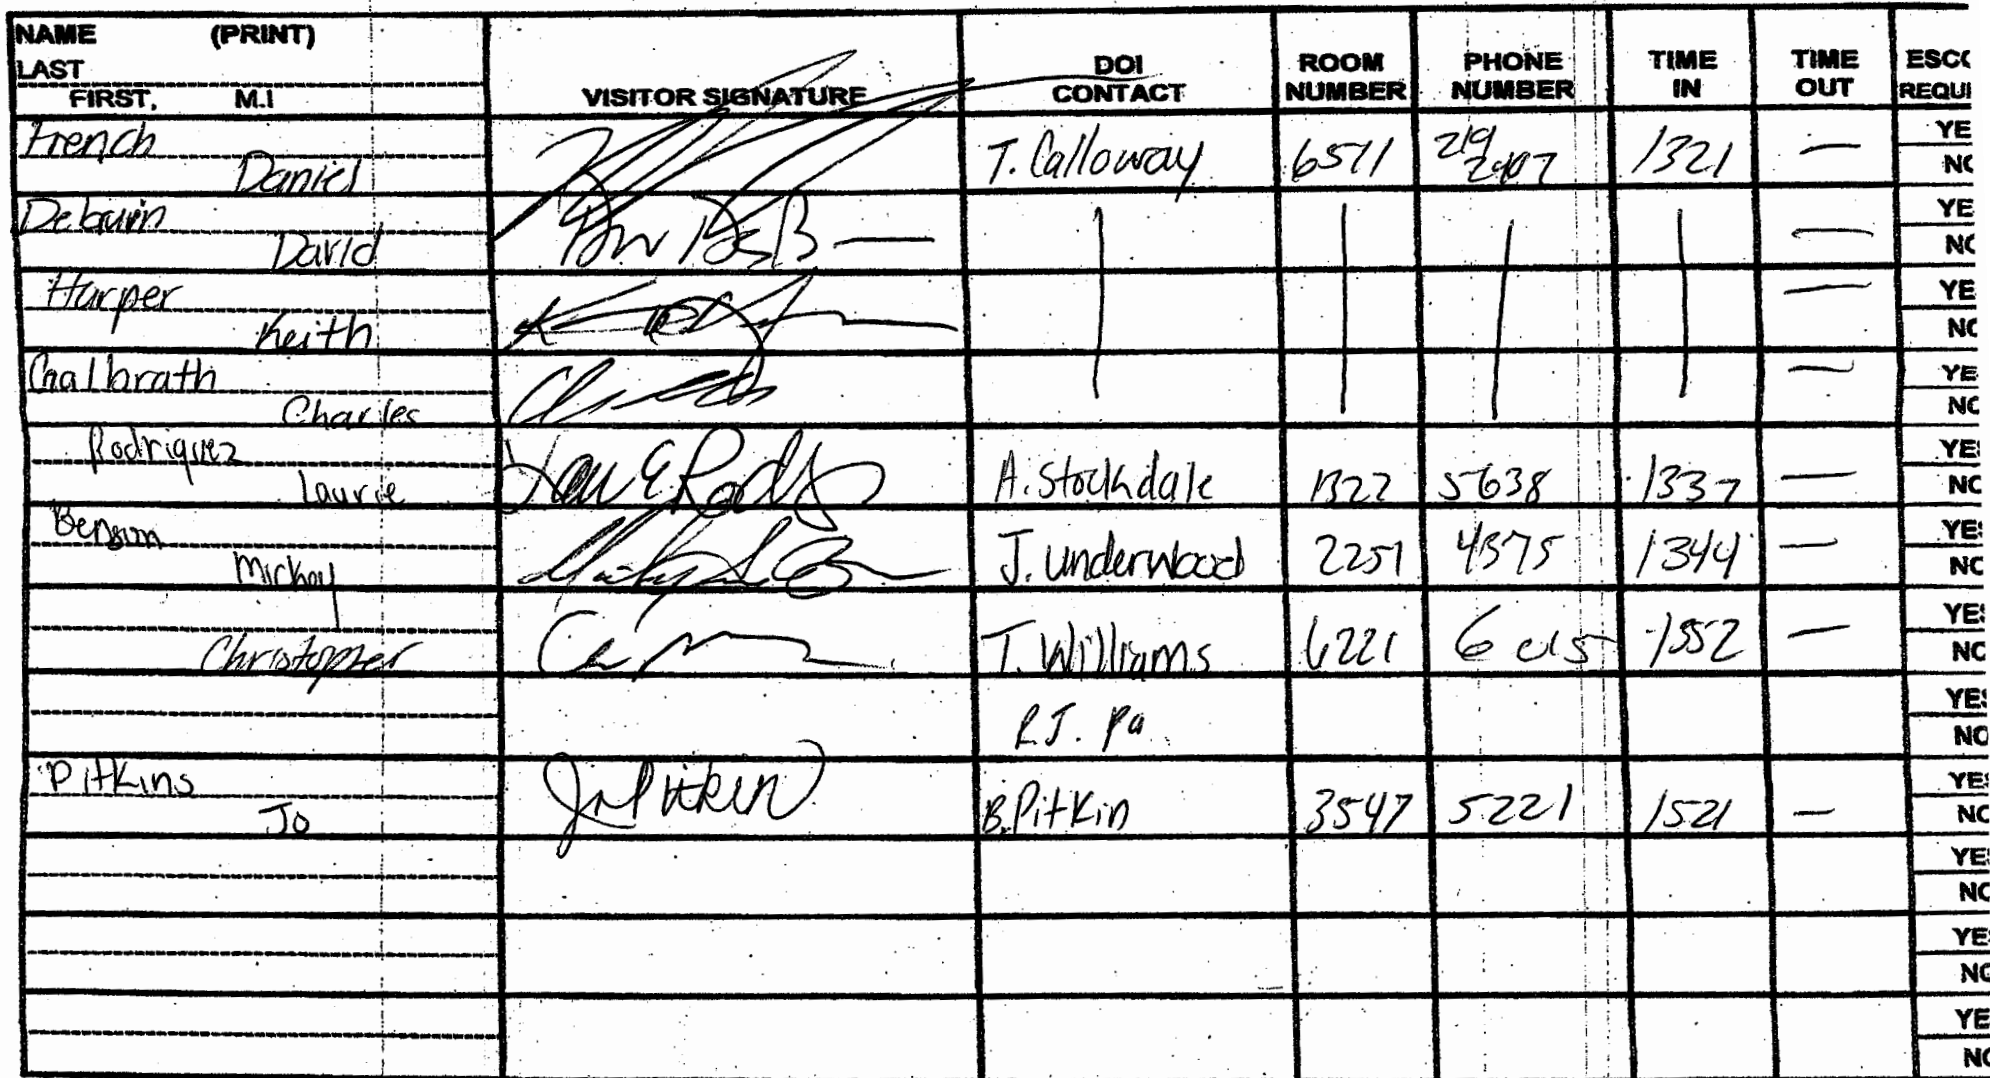 NAME (PRINT)
LAST
FIRST, M.I
VISITOR SIGNATURE
DOI
CONTACT
ROOM
NUMBER
PHONE
NUMBER
TIME
IN
TIME
OUT
ESCO
REQUI
French
Daniel
T. Calloway
6511
219
1321
—
YE
NO
David
—
YE
NO
Harper
Keith
—
YE
NO
Galbrath
Charles
—
YE
NO
Rodriguez
Laurie
A. Stockdale
1322
5638
1337
—
YES
NO
Benson
Mickey
J. Underwood
2251
4375
1344
—
YES
NO
Christopher
T. Williams
6221
1352
—
YES
NO
YES
NO
Pitkins
Jo
Jo Pitkin
B. Pitkin
3547
5221
1521
—
YES
NO
YES
NO
YES
NO
YE
NO